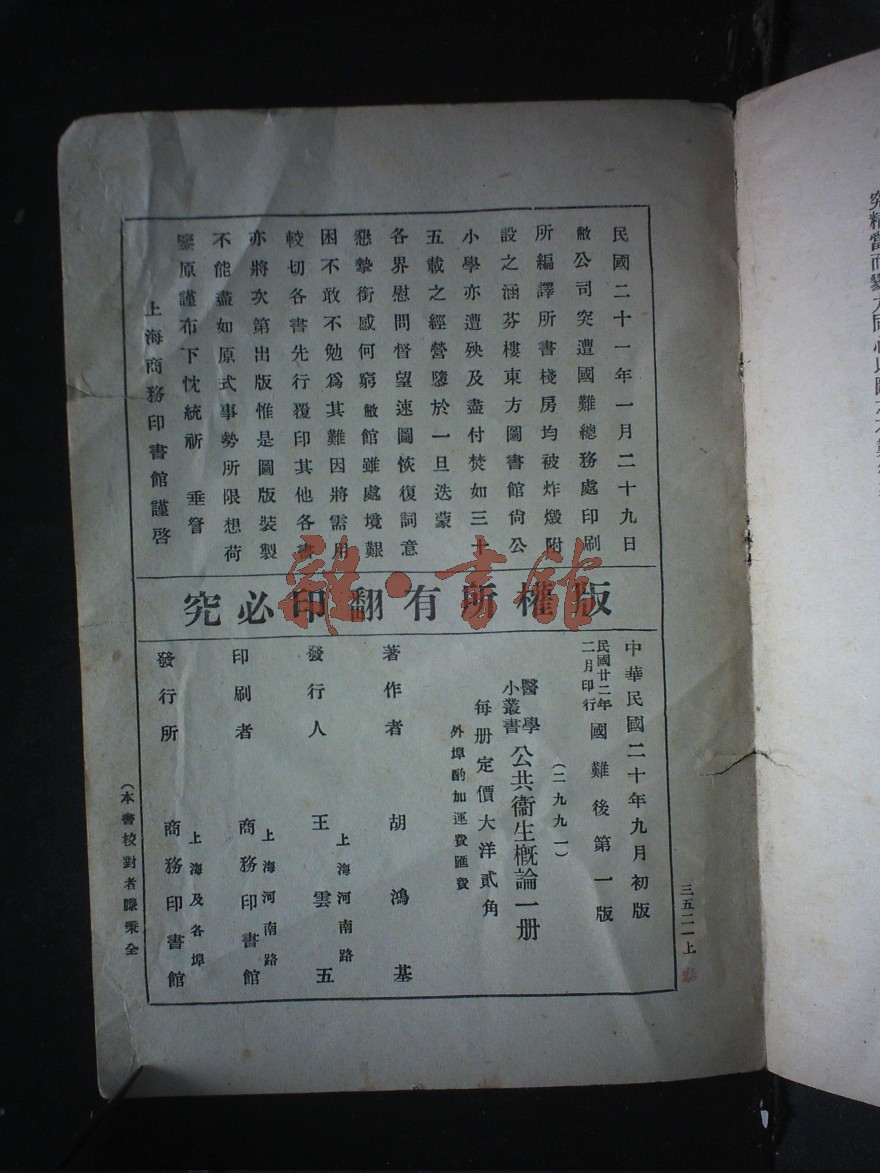 民國二十一年一月二十九日
敝公司突遭國難總務處印刷
所編譯所書棧房均被炸燬附
設之涵芬樓東方圖書館尙公
小學亦遭殃及盡付焚如三十
五載之經營隳於一旦迭蒙
各界慰問督望速圖恢復詞意
懇摯銜感何窮敝館雖處境艱
困不敢不勉爲其難因將需用
較切各書先行覆印其他各書
亦將次第出版惟是圖版裝製
不能盡如原式事勢所限想荷
鑒原謹布下忱統祈 垂詧
上海商務印書館謹啓
版權所有翻印必究
中華民國二十年九月初版
民國廿二年二月印行 國難後第一版
(二九九一)
醫學小叢書 公共衞生概論一册
每册定價大洋貳角
外埠酌加運費匯費
著作者 胡鴻基
發行人 上海河南路 王雲五
印刷者 上海河南路 商務印書館
發行所 上海及各埠 商務印書館
(本書校對者滕秉全
三五二一上
雜·書館